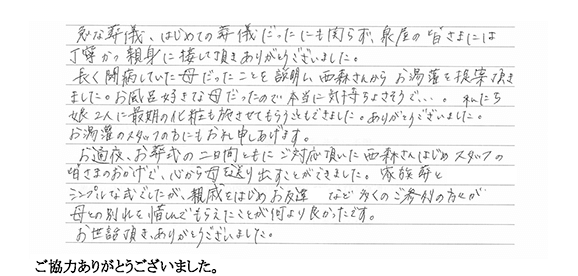 急な葬儀、はじめての葬儀だったにも関らず、泉屋の皆さまには
丁寧かつ親身に接して頂きありがとうございました。
長く闘病していた母だったことを説明し、西森さんからお湯灌を提案頂き
ました。お風呂好きな母だったので本当に気持ちよさそうで…。私たち
娘2人に最期の化粧も施させてもらうこともできました。ありがとうございました。
お湯灌のスタッフの方にもお礼申しあげます。
お通夜、お葬式の二日間ともにご対応頂いた西森さんはじめスタッフの
皆さまのおかげで、心から母を送り出すことができました。家族葬と
シンプルな式でしたが、親戚をはじめお友達 など多くのご参列の方々が
母との別れを惜しんでもらえたことが何より良かったです。
お世話頂き、ありがとうございました。
ご協力ありがとうございました。